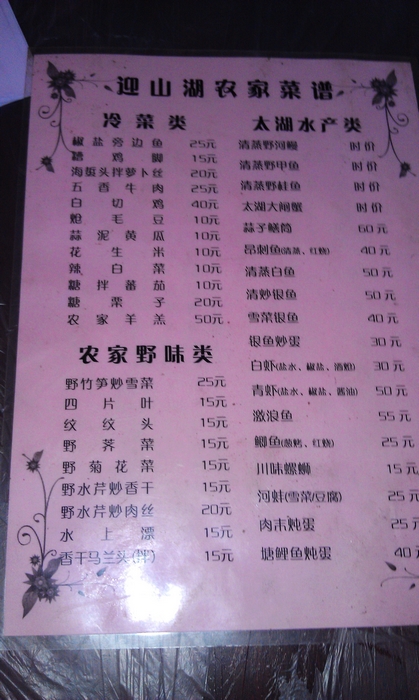 迎山湖农家菜谱
冷菜类
椒盐旁边鱼 25元
糟鸡脚 15元
海蜇头拌萝卜丝 20元
五香牛肉 25元
白切鸡 40元
炝毛豆 10元
蒜泥黄瓜 10元
花生米 10元
辣白菜 10元
糖拌番茄 10元
糖栗子 20元
农家羊羔 50元
农家野味类
野竹笋炒雪菜 25元
四片叶 15元
纹纹头 15元
野荠菜 15元
野菊花菜 15元
野水芹炒香干 15元
野水芹炒肉丝 20元
水上漂 15元
香干马兰头(拌) 15元
太湖水产类
清蒸野河鳗 时价
清蒸野甲鱼 时价
清蒸野桂鱼 时价
太湖大闸蟹 时价
蒜子鳝筒 60元
昂刺鱼(清蒸、红烧) 40元
清蒸白鱼 50元
清炒银鱼 50元
雪菜银鱼 40元
银鱼炒蛋 30元
白虾(盐水、椒盐、酒醉) 30元
青虾(盐水、椒盐、酱油) 50元
激浪鱼 55元
鲫鱼(葱烤、红烧) 25元
川味螺蛳 15元
河蚌(雪菜/豆腐) 25元
肉末炖蛋 25元
塘鲤鱼炖蛋 40